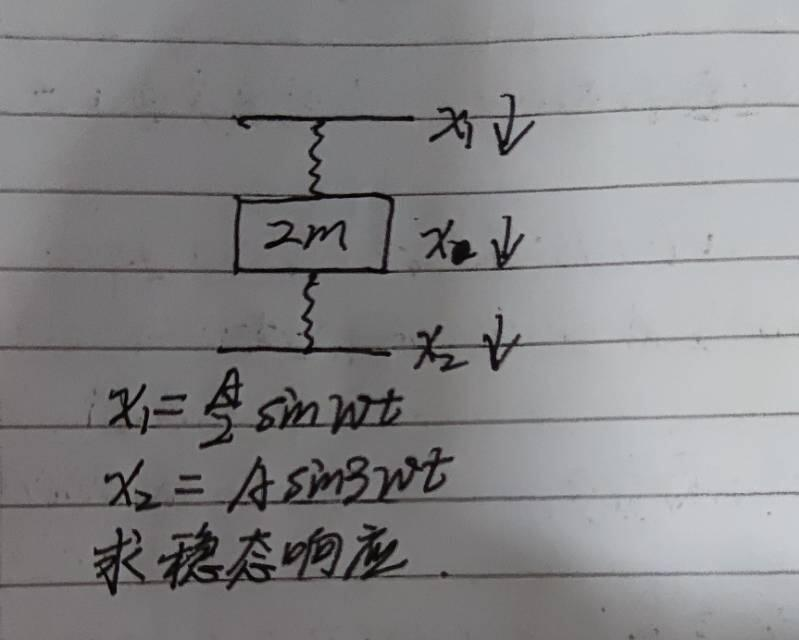 x₁↓
2m
x↓
x₂↓
x₁=A/2 sinwt
x₂=Asin3wt
求稳态响应.